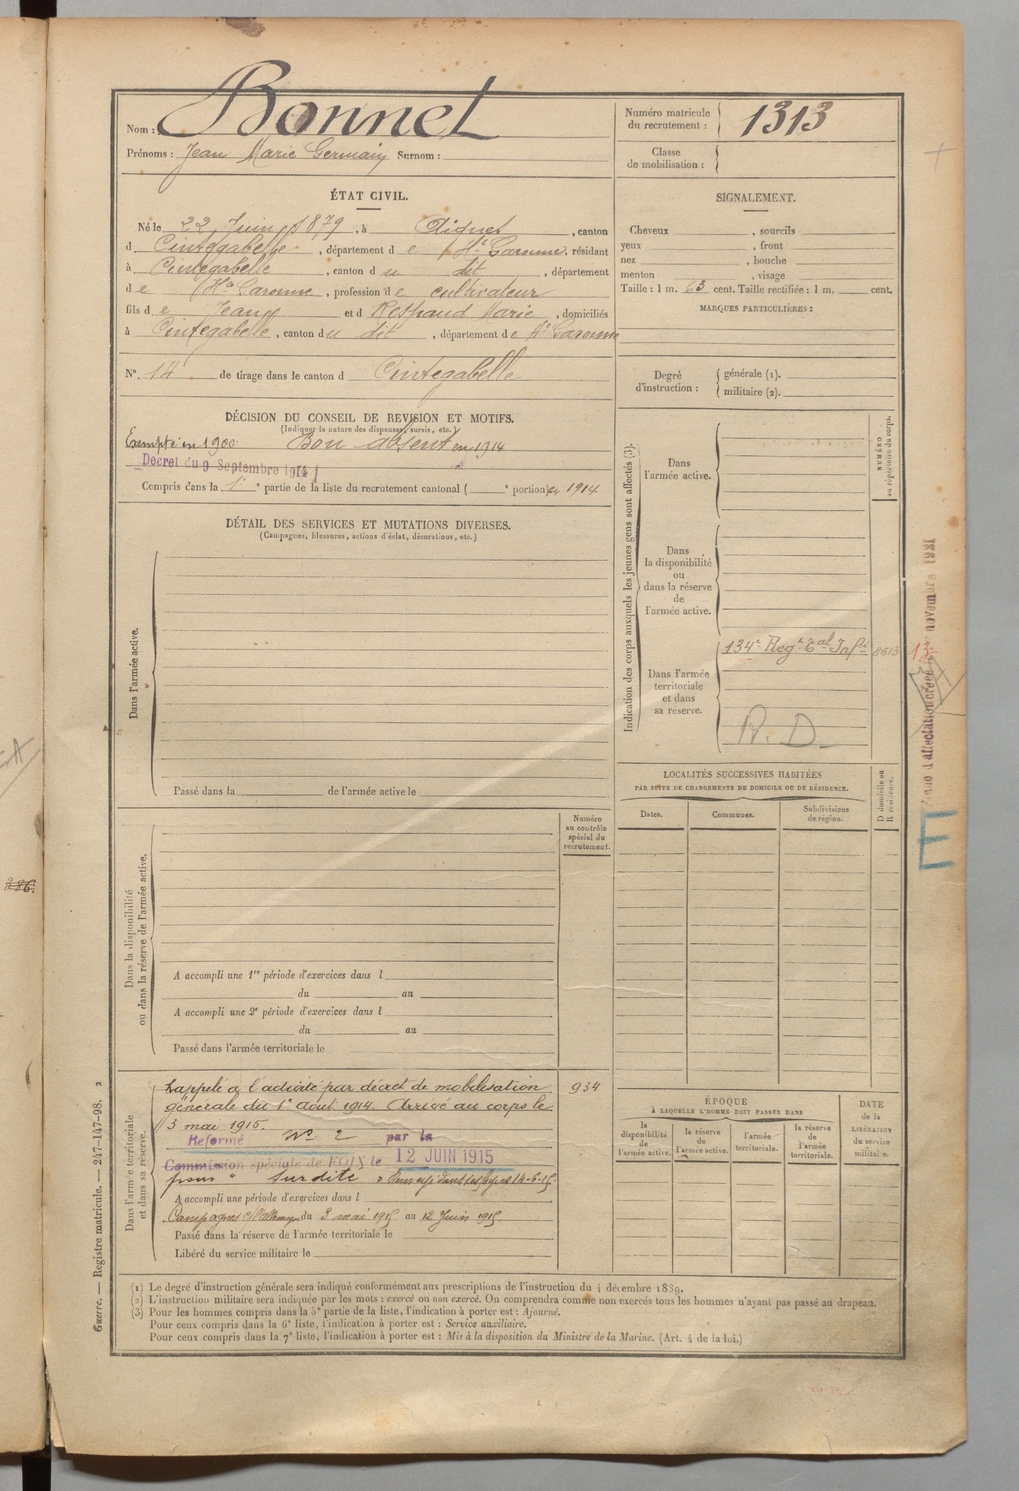 Nom : Bonnet
Prénoms : Jean Marie Germain Surnom :
Numéro matricule du recrutement : 1313
Classe de mobilisation :
ÉTAT CIVIL.
Né le 22 Juin 1879, à , canton
d Cintegabelle, département d e Hte Garonne, résidant
à Cintegabelle, canton d u dit, département
d e Hte Garonne, profession d e cultivateur
fils d e Jean et d Respaud Marie, domiciliés
à Cintegabelle, canton du dit, département de Hte Garonne
No. 14 de tirage dans le canton d Cintegabelle
SIGNALEMENT.
Cheveux , sourcils
yeux , front
nez , bouche
menton , visage
Taille : 1 m. 63 cent. Taille rectifiée : 1 m. cent.
MARQUES PARTICULIÈRES :
Degré d'instruction : générale (1).
militaire (2).
DÉCISION DU CONSEIL DE REVISION ET MOTIFS.
(Indiquer la nature des dispenses, sursis, etc.)
Exempté en 1900 Bon absent en 1914
Décret du 9 Septembre 1914
Compris dans la 1e partie de la liste du recrutement cantonal ( e portion) en 1914
DÉTAIL DES SERVICES ET MUTATIONS DIVERSES.
(Campagnes, blessures, actions d'éclat, décorations, etc.)
Dans l'armée active.
Passé dans la de l'armée active le
Indication des corps auxquels les jeunes gens sont affectés (3).
NUMÉRO au répertoire du corps.
Dans
l'armée active.
Dans
la disponibilité
ou
dans la réserve
de
l'armée active.
Dans l'armée
territoriale
et dans
sa réserve.
134e Regt Tal Infie 8613
R. D.
13
novembre 1931
E
LOCALITÉS SUCCESSIVES HABITÉES
PAR SUITE DE CHANGEMENTS DE DOMICILE OU DE RÉSIDENCE.
Dates. Communes. Subdivisions de région. D domicile ou R résidence.
Numéro
au contrôle
spécial du
recrutement.
Dans la disponibilité
ou dans la réserve de l'armée active.
A accompli une 1re période d'exercices dans l
du au
A accompli une 2e période d'exercices dans l
du au
Passé dans l'armée territoriale le
Dans l'armée territoriale
et dans sa réserve.
Rappelé à l'activité par décret de mobilisation 934
générale du 1er Août 1914. Arrivé au corps le
3 mai 1915.
Réformé No 2 par la
Commission spéciale de FOIX le 12 JUIN 1915
pour " surdité "
A accompli une période d'exercices dans l
Campagnes du 3 mai 1915 au 12 Juin 1915
Passé dans la réserve de l'armée territoriale le
Libéré du service militaire le
ÉPOQUE
À LAQUELLE L'HOMME DOIT PASSER DANS
la disponibilité de l'armée active.
la réserve de l'armée active.
l'armée territoriale.
la réserve de l'armée territoriale.
DATE de la LIBÉRATION du service militaire.
(1) Le degré d'instruction générale sera indiqué conformément aux prescriptions de l'instruction du 4 décembre 1889.
(2) L'instruction militaire sera indiquée par les mots : exercé ou non exercé. On comprendra comme non exercés tous les hommes n'ayant pas passé au drapeau.
(3) Pour les hommes compris dans la 5e partie de la liste, l'indication à porter est : Ajourné.
Pour ceux compris dans la 6e liste, l'indication à porter est : Service auxiliaire.
Pour ceux compris dans la 7e liste, l'indication à porter est : Mis à la disposition du Ministre de la Marine. (Art. 4 de la loi.)
Guerre. — Registre matricule. — 247-147-98. 2
286.